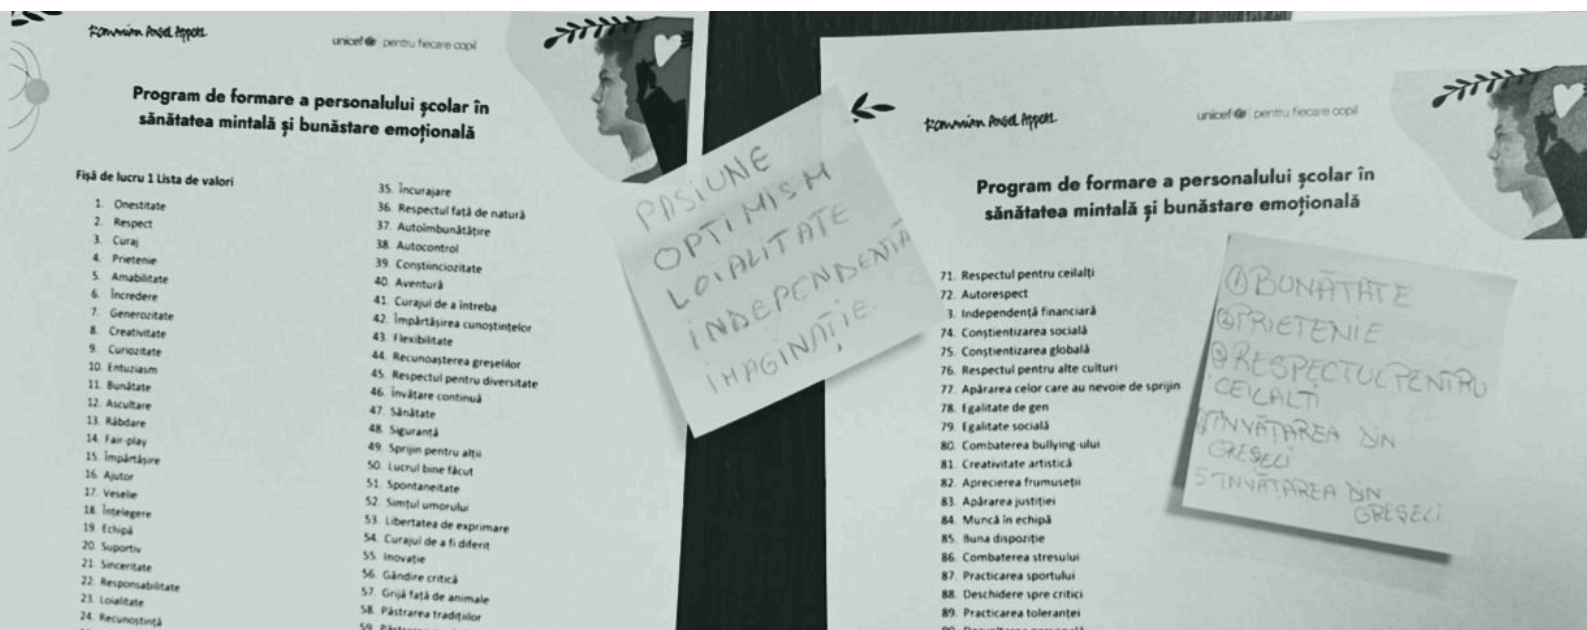 Romanian Angel Appeal
unicef pentru fiecare copil
Program de formare a personalului școlar în
sănătatea mintală și bunăstare emoțională
Fișă de lucru 1 Lista de valori
1. Onestitate
2. Respect
3. Curaj
4. Prietenie
5. Amabilitate
6. Încredere
7. Generozitate
8. Creativitate
9. Curiozitate
10. Entuziasm
11. Bunătate
12. Ascultare
13. Răbdare
14. Fair-play
15. Împărtășire
16. Ajutor
17. Veselie
18. Înțelegere
19. Echipă
20. Suportiv
21. Sinceritate
22. Responsabilitate
23. Loialitate
24. Recunoștință
35. Încurajare
36. Respectul față de natură
37. Autoîmbunătățire
38. Autocontrol
39. Conștiinciozitate
40. Aventură
41. Curajul de a întreba
42. Împărtășirea cunoștințelor
43. Flexibilitate
44. Recunoașterea greșelilor
45. Respectul pentru diversitate
46. Învățare continuă
47. Sănătate
48. Siguranță
49. Sprijin pentru alții
50. Lucrul bine făcut
51. Spontaneitate
52. Simțul umorului
53. Libertatea de exprimare
54. Curajul de a fi diferit
55. Inovație
56. Gândire critică
57. Grijă față de animale
58. Păstrarea tradițiilor
PASIUNE
OPTIMISM
LOIALITATE
INDEPENDENȚĂ
IMAGINAȚIE.
Romanian Angel Appeal
unicef pentru fiecare copil
Program de formare a personalului școlar în
sănătatea mintală și bunăstare emoțională
71. Respectul pentru ceilalți
72. Autorespect
3. Independență financiară
74. Conștientizarea socială
75. Conștientizarea globală
76. Respectul pentru alte culturi
77. Apărarea celor care au nevoie de sprijin
78. Egalitate de gen
79. Egalitate socială
80. Combaterea bullying-ului
81. Creativitate artistică
82. Aprecierea frumuseții
83. Apărarea justiției
84. Muncă în echipă
85. Buna dispoziție
86. Combaterea stresului
87. Practicarea sportului
88. Deschidere spre critici
89. Practicarea toleranței
1 BUNĂTATE
2 PRIETENIE
3 RESPECTUL PENTRU
CEILALȚI
4 ÎNVĂȚAREA DIN
GREȘELI
5 ÎNVĂȚAREA DIN
GREȘELI